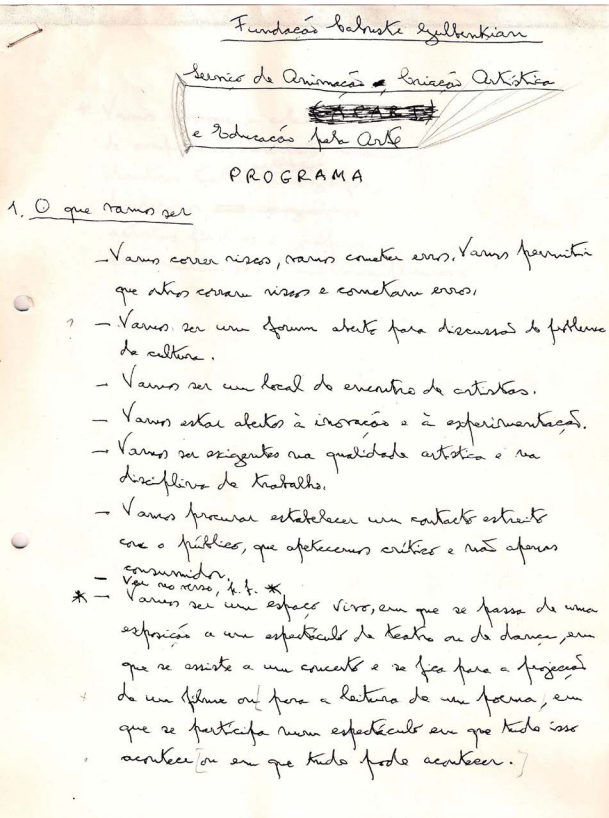 Fundação Calouste Gulbenkian
Serviço de Animação, Criação Artística
(ACARTE)
e Educação pela Arte
PROGRAMA
1. O que vamos ser
– Vamos correr riscos, vamos cometer erros. Vamos permitir
que outros corram riscos e cometam erros.
? – Vamos ser um forum aberto para discussão do problema
da cultura.
– Vamos ser um local de encontro de artistas.
– Vamos estar abertos à inovação e à experimentação.
– Vamos ser exigentes na qualidade artística e na
disciplina de trabalho.
– Vamos procurar estabelecer um contacto estreito
com o público, que apetecemos crítico e não apenas
consumidor.
– Ver no verso, p. f. *
* – Vamos ser um espaço vivo, em que se passa de uma
exposição a um espectáculo de teatro ou de dança, em
que se assiste a um concerto e se fica para a projecção
de um filme ou para a leitura de um poema, em
que se participa num espectáculo em que tudo isso
acontece [ou em que tudo pode acontecer.]